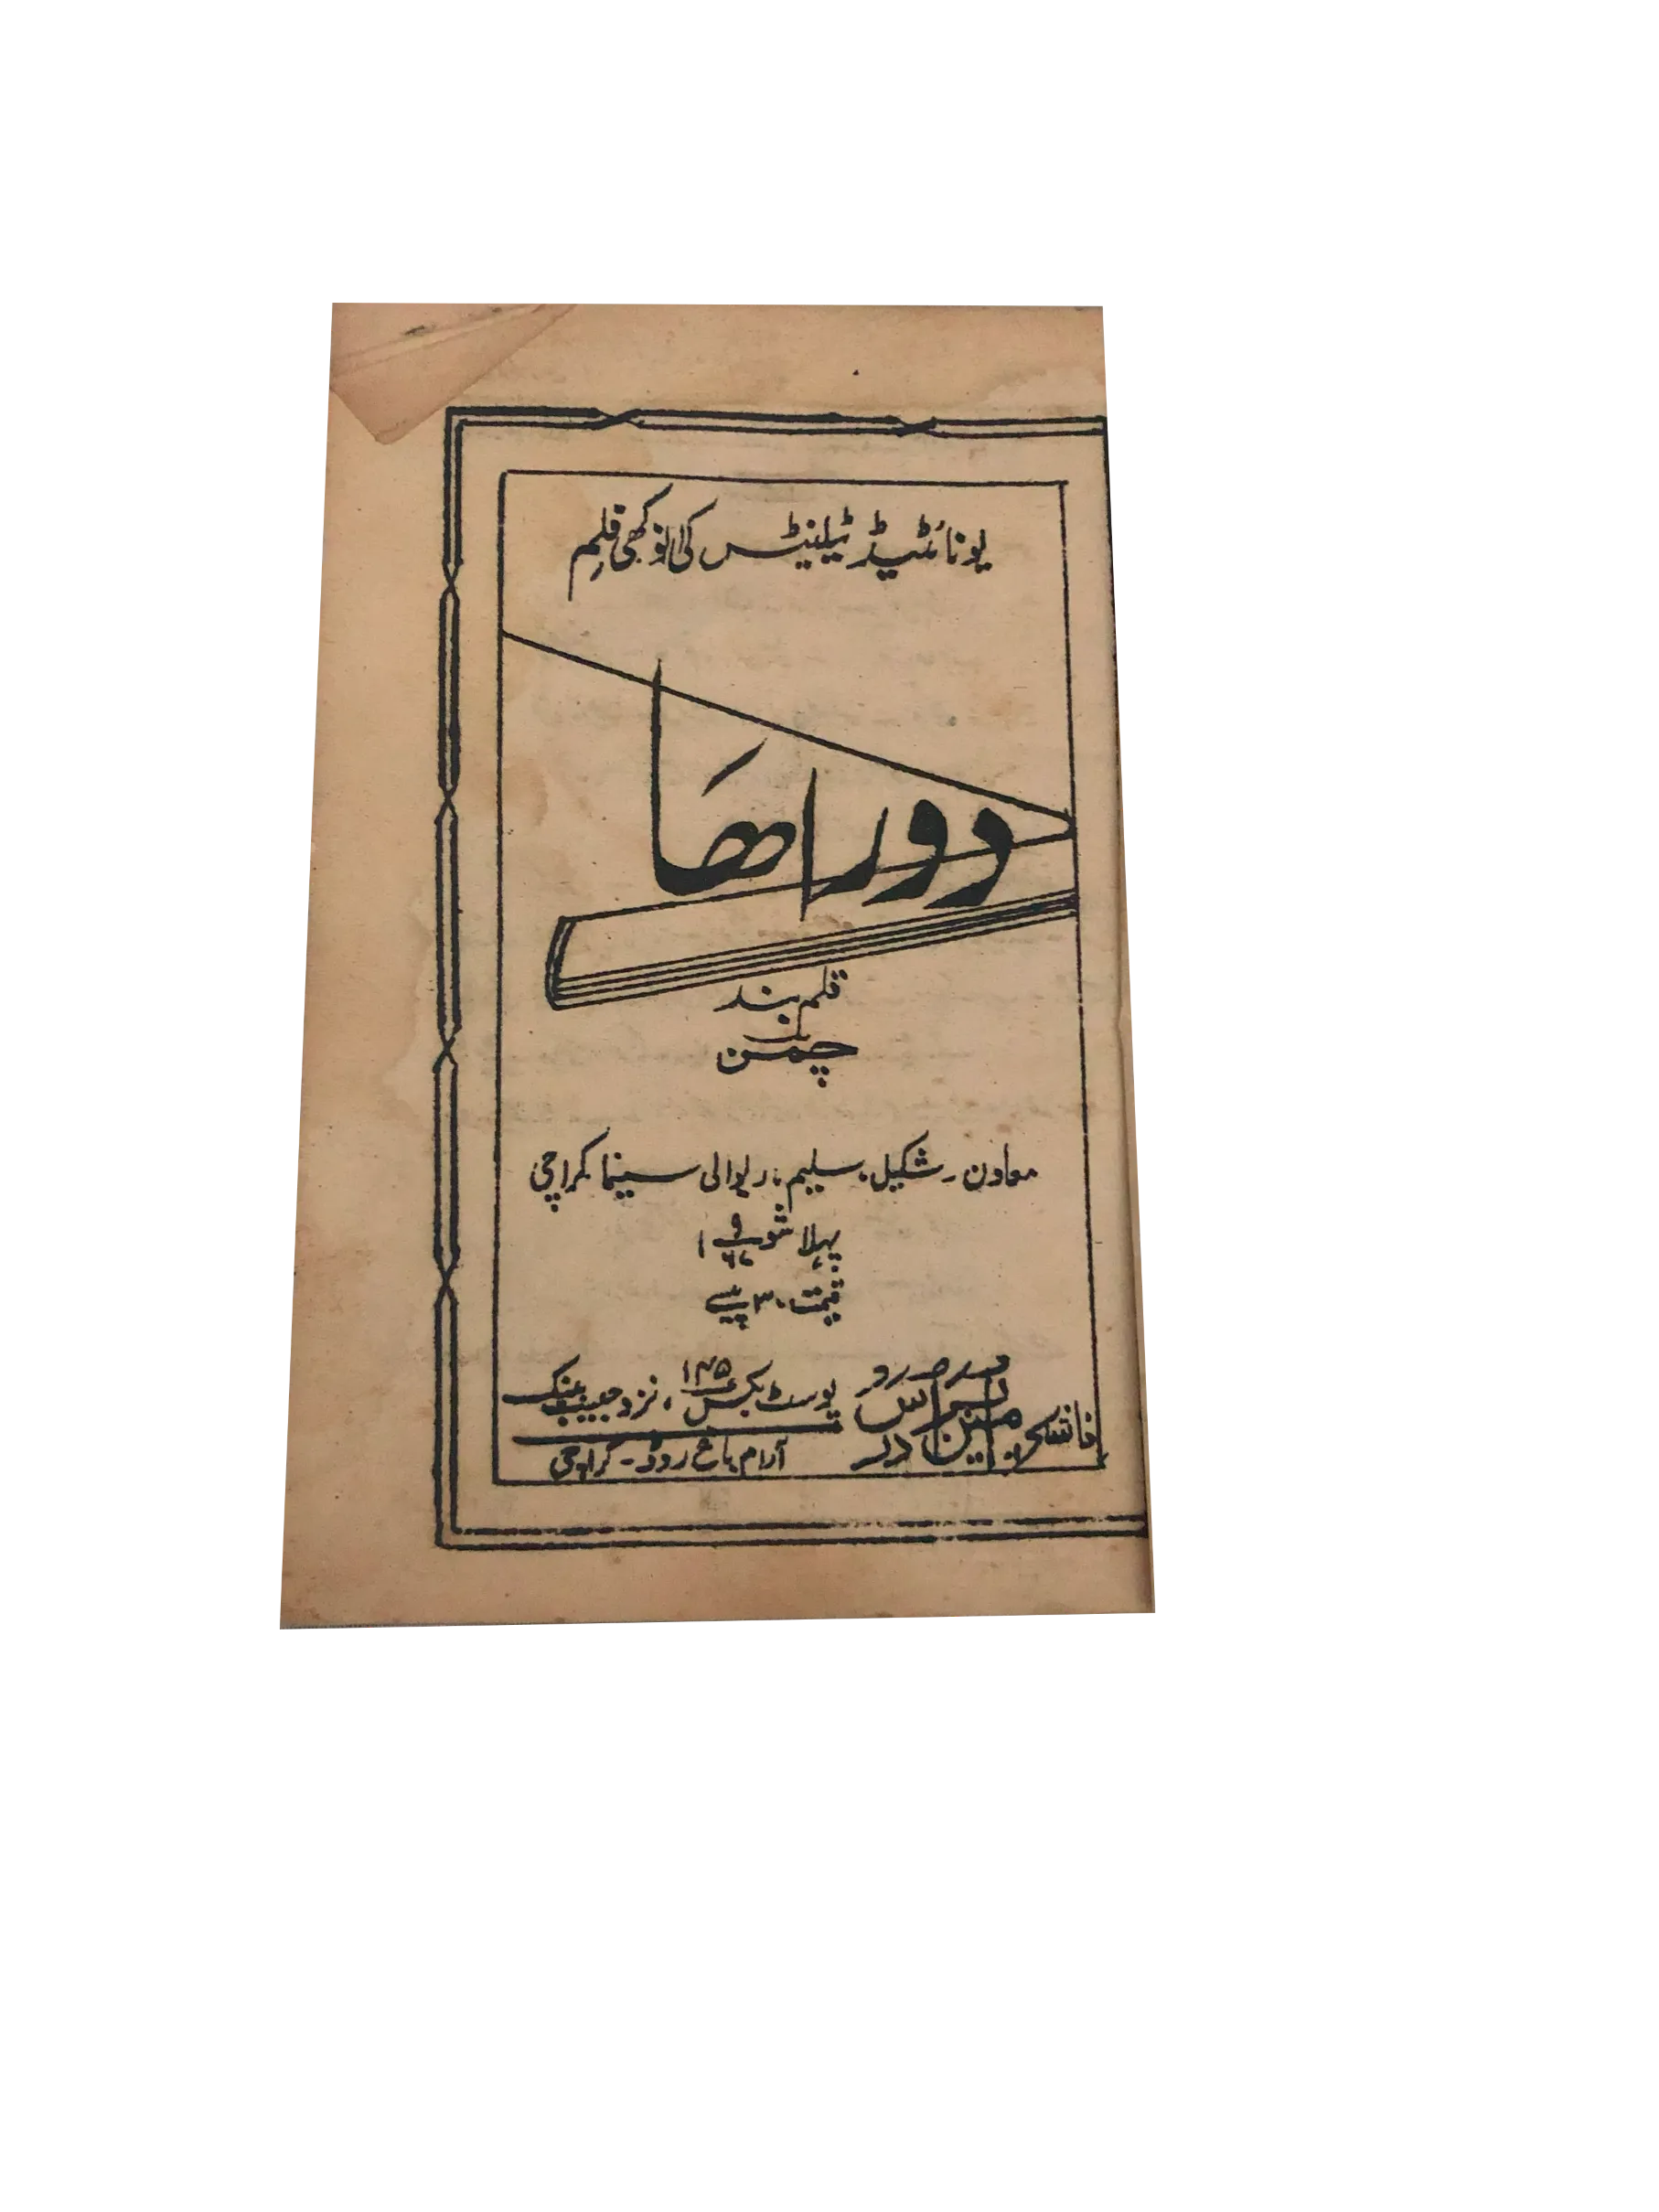 یونائٹیڈ ٹیلنیٹس کی انوکھی فلم
دوراھا
قلم بند
چمن
معاون ۔ شکیل، سلیم، ریوالی سینما کراچی
پہلا شو ۱۹۶۷
قیمت ۳۰ پیسے
پوسٹ بکس ۱۳۵، نزد حبیب بنک
آرام باغ روڈ ۔ کراچی